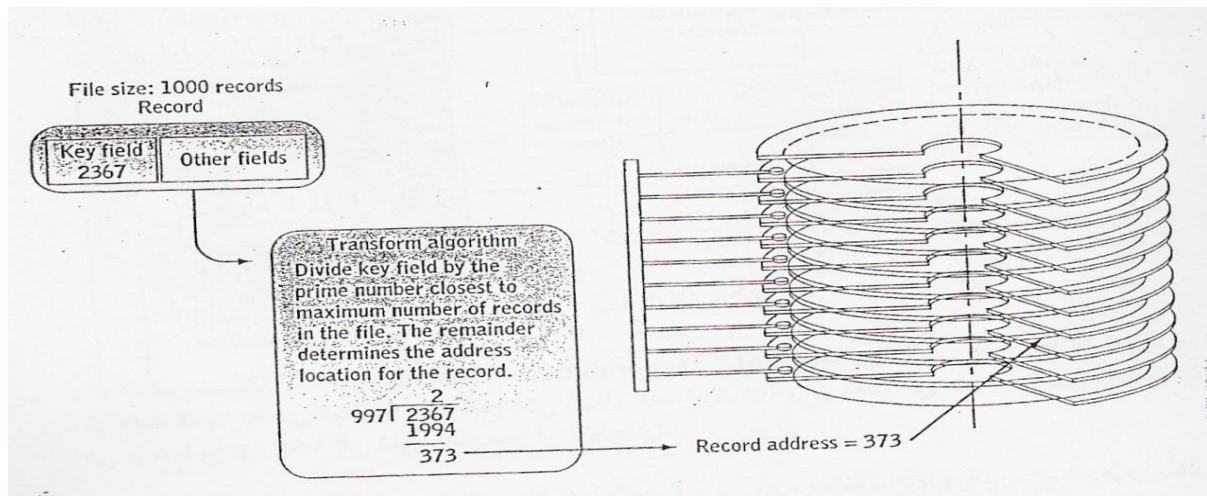 File size: 1000 records
Record
Key field
2367
Other fields
Transform algorithm
Divide key field by the
prime number closest to
maximum number of records
in the file. The remainder
determines the address
location for the record.
2
997 2367
1994
373
Record address = 373